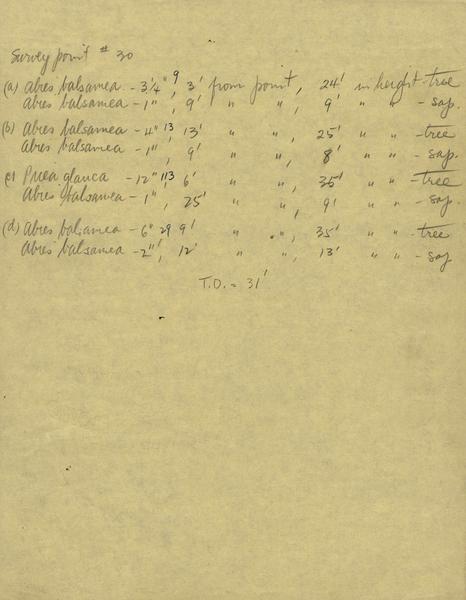 Survey point # 30
(a) Abies balsamea - 3 1/4" 9, 3' from point, 24' in height - tree
Abies balsamea - 1", 9' " ", 9' " " - sap.
(b) Abies balsamea - 4" 13, 13' " ", 25' " " - tree
Abies balsamea - 1", 9' " ", 8' " " - sap.
(c) Picea glauca - 12" 113, 6' " ", 35' " " - tree
Abies balsamea - 1", 25' " ", 9' " " - sap.
(d) Abies balsamea - 6" 29, 9' " ", 35' " " - tree
Abies balsamea - 2", 12' " ", 13' " " - sap
T.D. = 31'